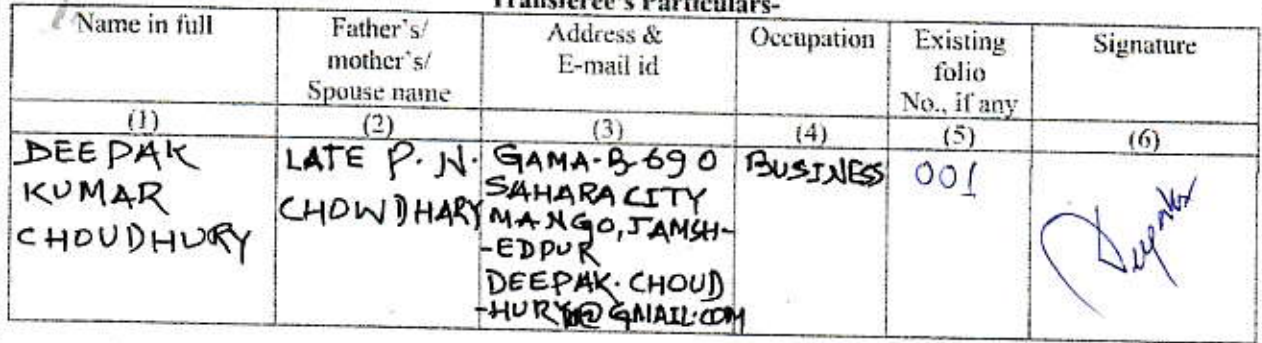 Transferee's Particulars-
Name in full
Father's/
mother's/
Spouse name
Address &
E-mail id
Occupation
Existing
folio
No., if any
Signature
(1)
(2)
(3)
(4)
(5)
(6)
DEEPAK
KUMAR
CHOUDHURY
LATE P. N.
CHOWDHARY
GAMA-B-690
SAHARA CITY
MANGO, JAMSH-
-EDPUR
DEEPAK.CHOUD
-HURY@GMAIL.COM
BUSINESS
001